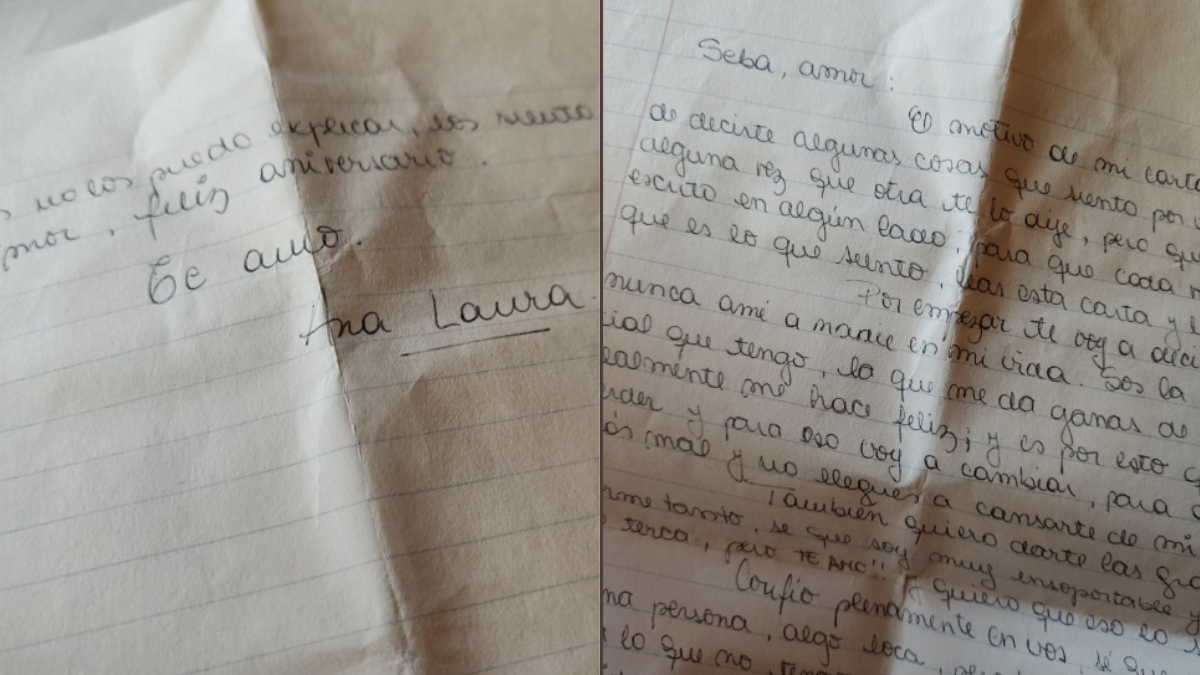 no los puedo explicar, los siento
amor, feliz aniversario.
Te amo.
Ana Laura.
Seba, amor:
El motivo de mi carta
de decirte algunas cosas que siento por
alguna vez que otra te lo dije, pero
escrito en algún lado, para que cada
que es lo que siento, leas esta carta y
Por empezar te voy a
nunca amé a nadie en mi vida. Sos la
que tengo, la que me da ganas de
realmente me hace feliz; y es por esto
y para eso voy a cambiar, para
más mal y no llegues a cansarte de mi
También quiero darte las
tanto, se que soy muy insoportable y
terca, pero TE AMO!! Y quiero que eso lo
Confío plenamente en vos, sé que
persona, algo loca,
lo que no